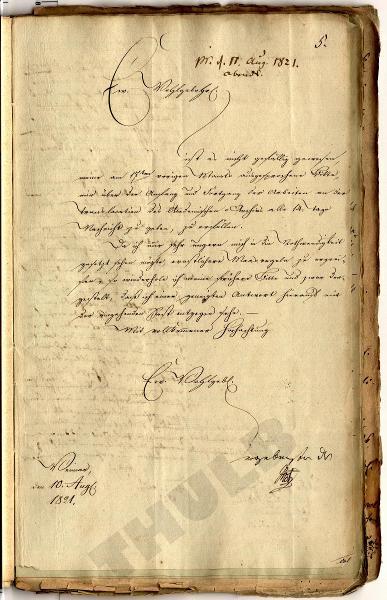 5.
pr. d. 11. Aug. 1821.
abends.
Ew. Wohlgebohr.
ist es nicht gefällig gewesen,
meine am 17ten vorigen Monats ausgesprochene Bitte,
mir über den Anfang und Fortgang der Arbeiten an der
Translocation des Akademischen Archivs alle 14 Tage
Nachricht zu geben, zu erfüllen.
Da ich mich sehr ungern in die Nothwendigkeit
gesetzt sehen möchte, ernstlichere Maasregeln zu ergrei-
fen, so wiederhole ich meine frühere Bitte und zwar der-
gestalt, daß ich einer geneigten Antwort hierauf mit
der umgehenden Post entgegen sehe. —
Mit vollkommener Hochachtung
Ew. Wohlgeb.
ergebenster Dr
Weimar,
den 10. Aug.
1821.
THULB